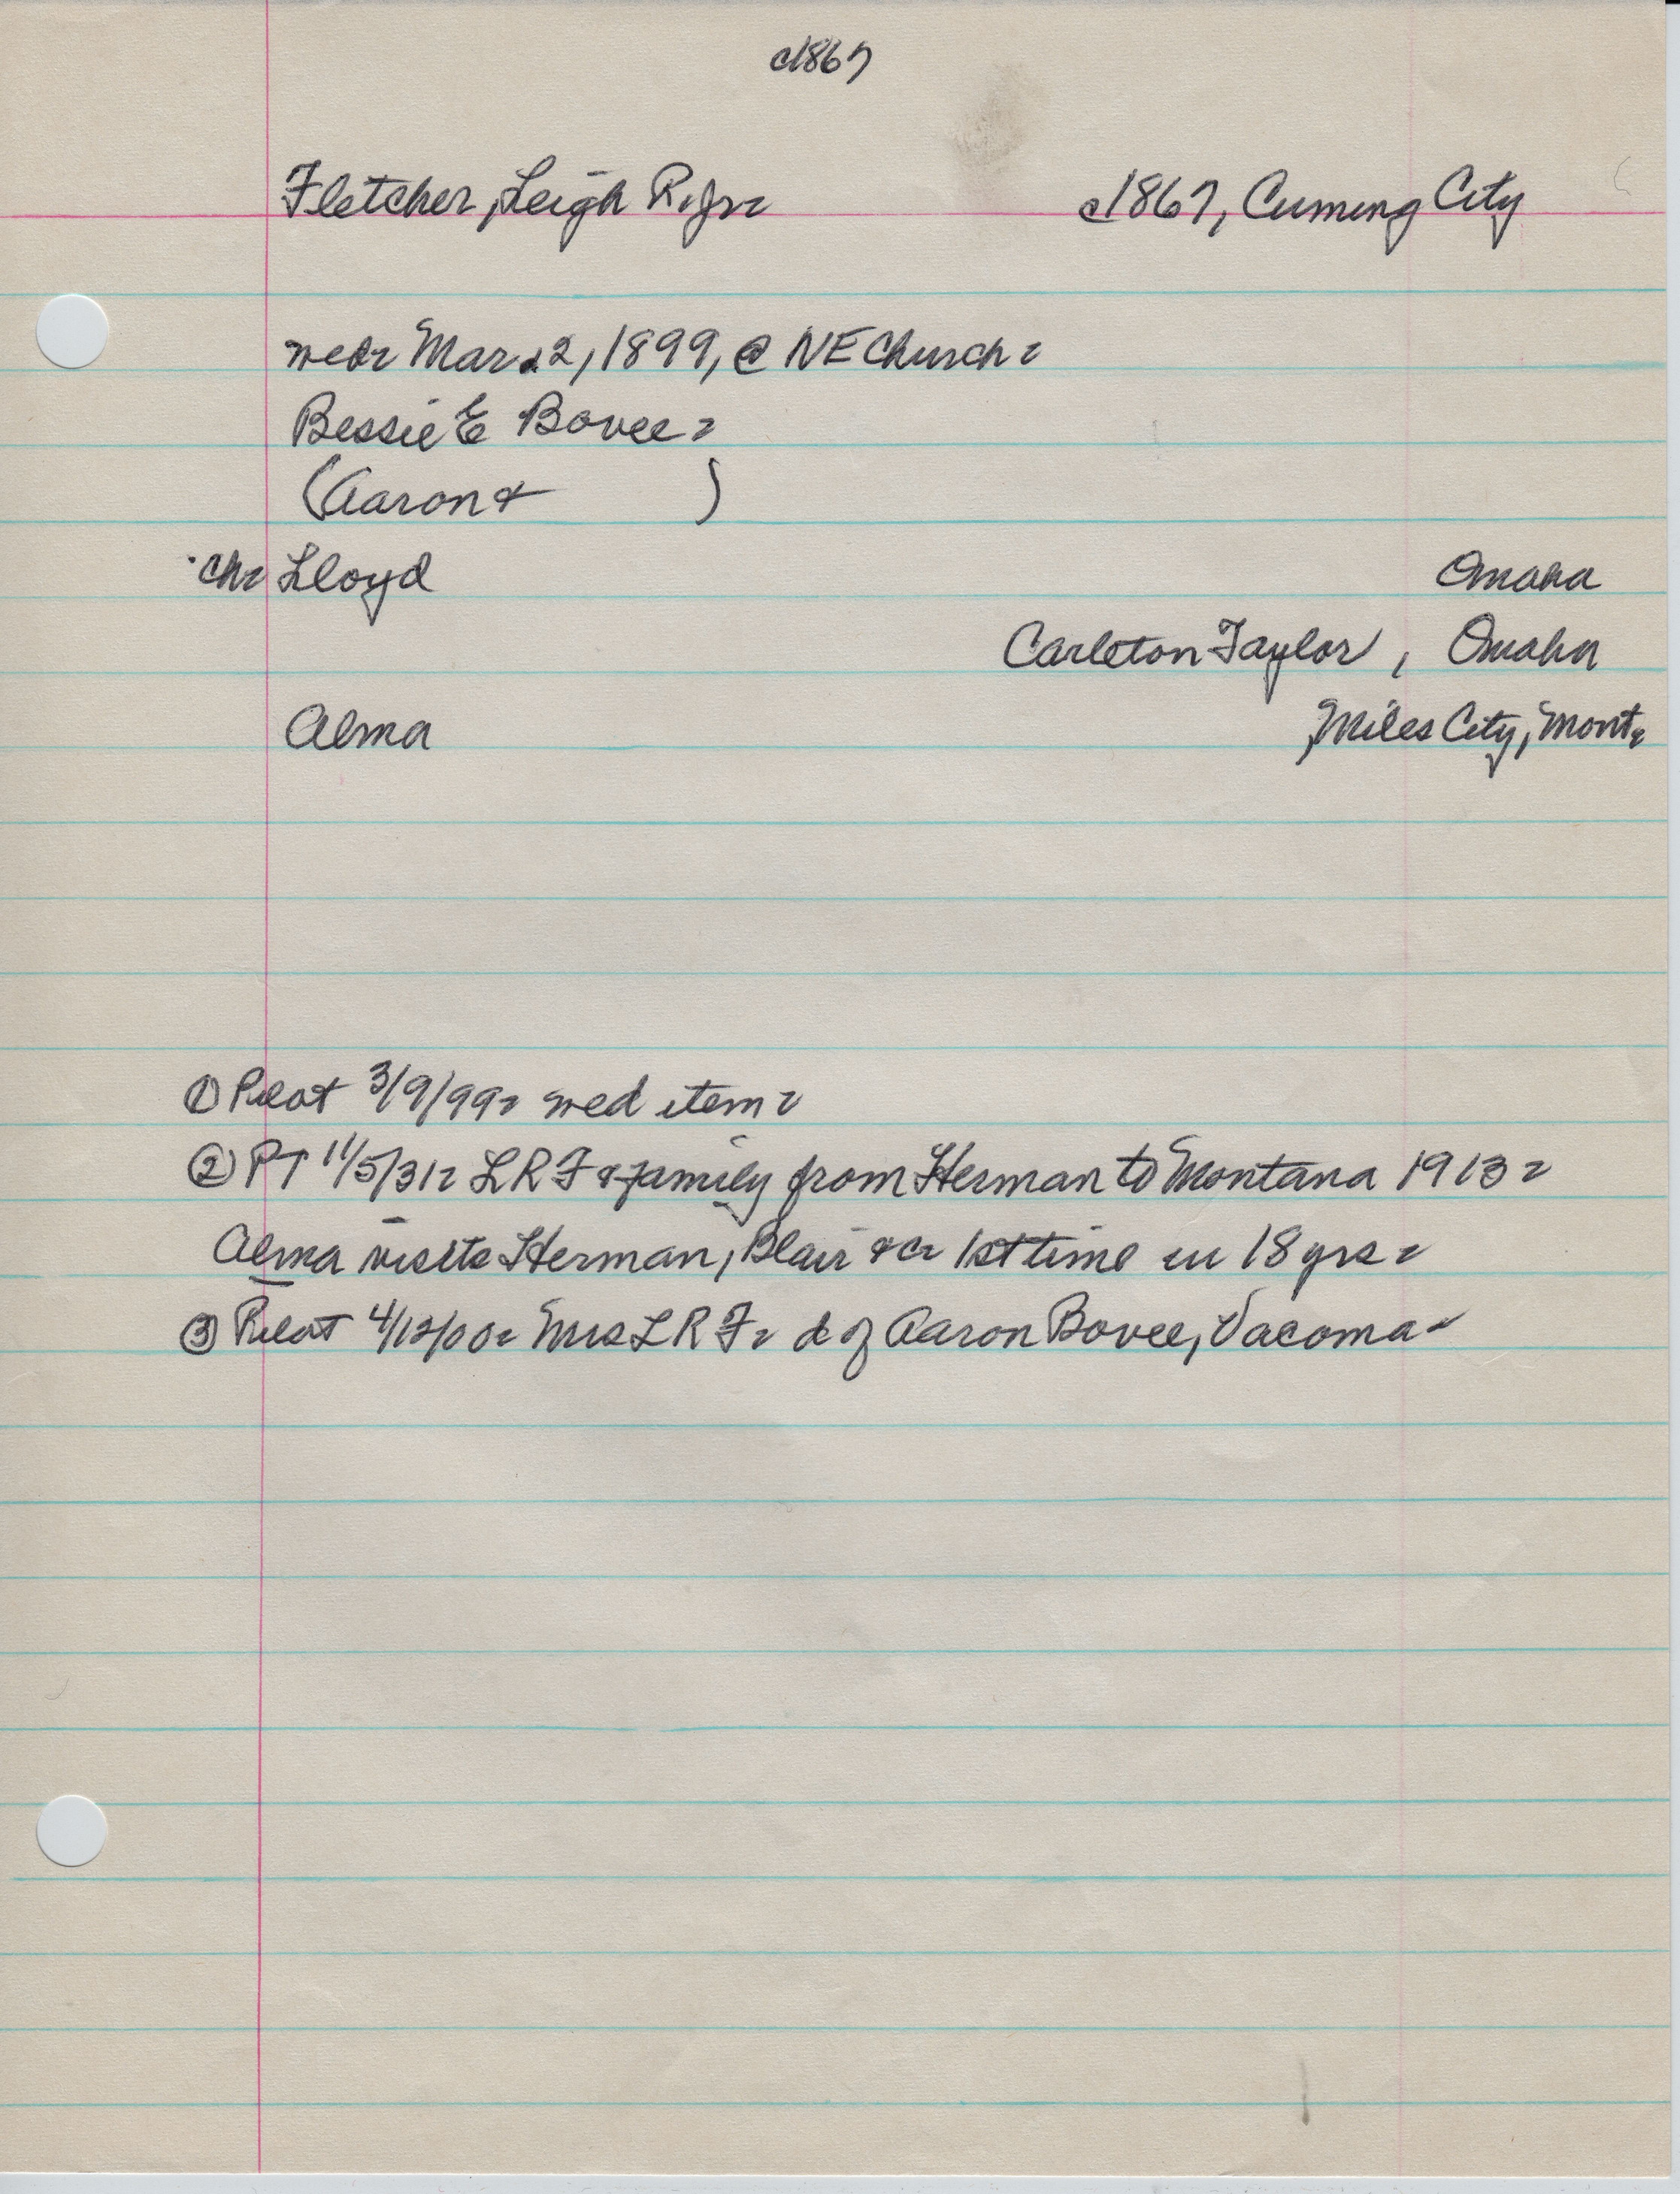 c1867
Fletcher, Leigh R. Jr. c1867, Cuming City
wed. Mar. 2, 1899, @ NE Church.
Bessie E Bovee.
(Aaron & )
Ch. Lloyd Omaha
Carleton Taylor, Omaha
Alma Miles City, Mont.
① Pilot 3/9/99. wed item.
② PT 11/5/31. LRF & family from Herman to Montana 1913.
Alma visits Herman, Blair &c. 1st time in 18 yrs.
③ Pilot 4/12/00. Mrs LRF. d of Aaron Bovee, Vacoma.